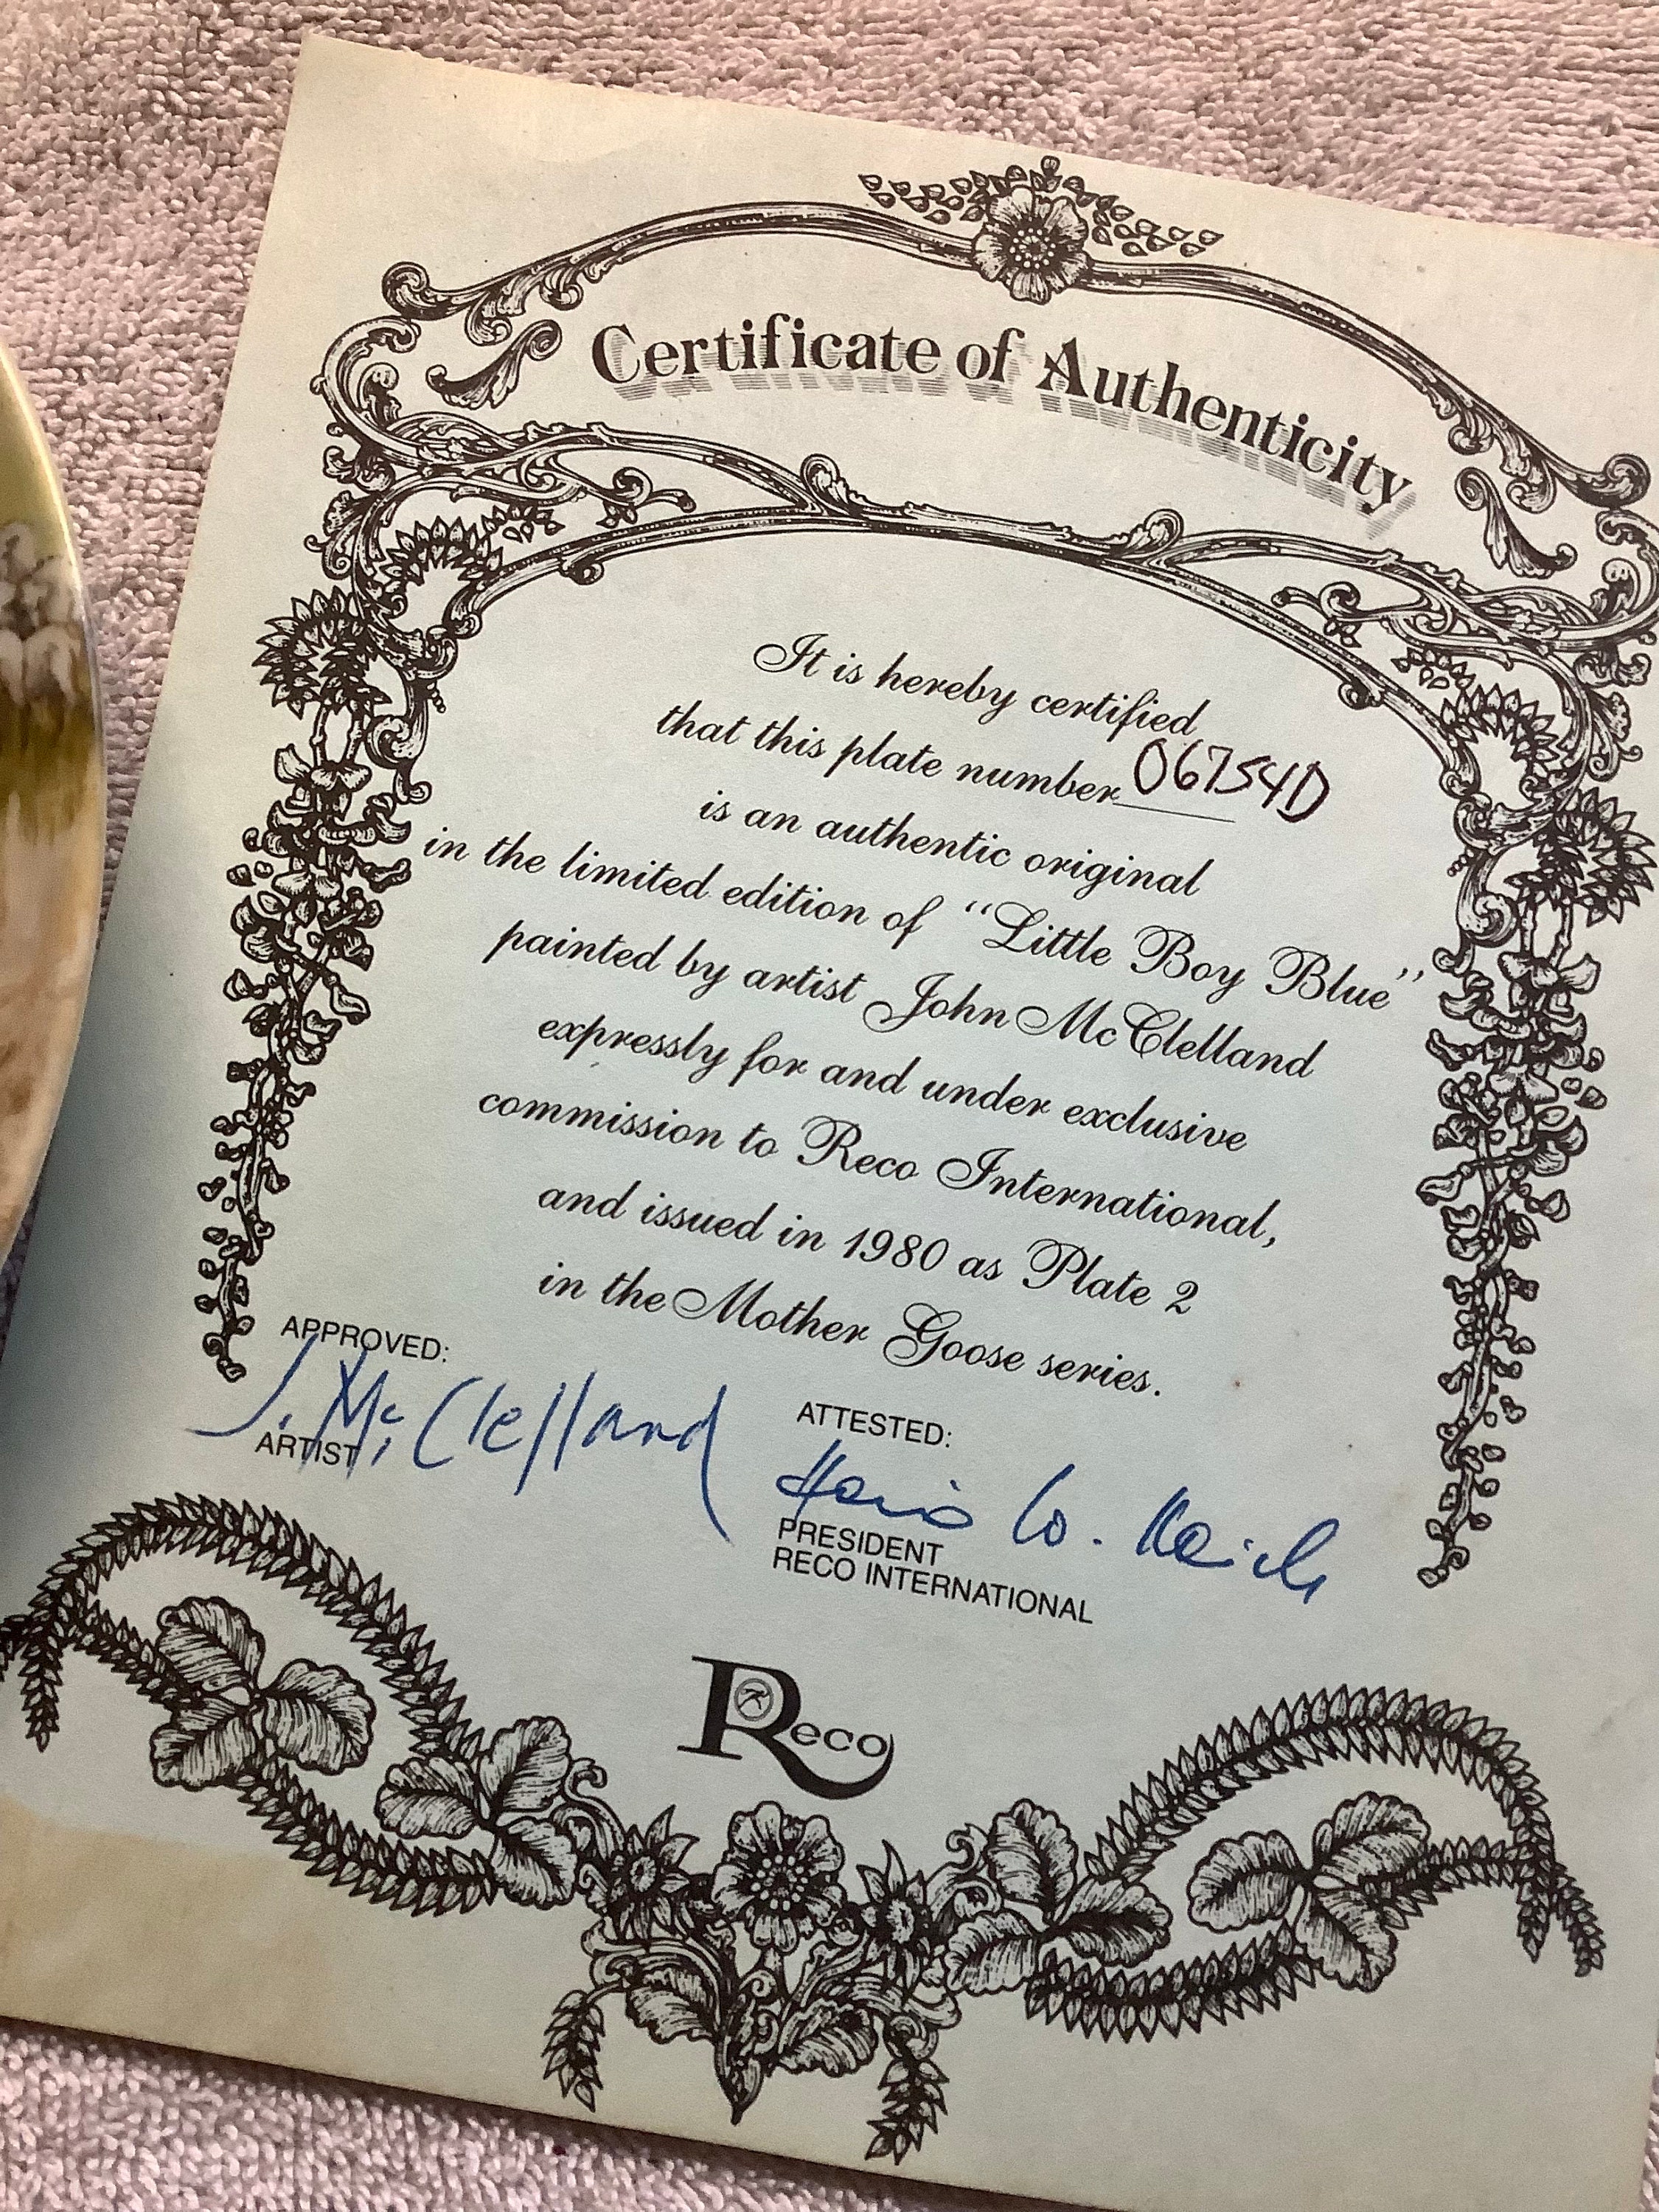 Certificate of Authenticity
It is hereby certified
that this plate number 06754D
is an authentic original
in the limited edition of "Little Boy Blue"
painted by artist John McClelland
expressly for and under exclusive
commission to Reco International,
and issued in 1980 as Plate 2
in the Mother Goose series.
APPROVED:
J. McClelland
ARTIST
ATTESTED:
W.
PRESIDENT
RECO INTERNATIONAL
Reco